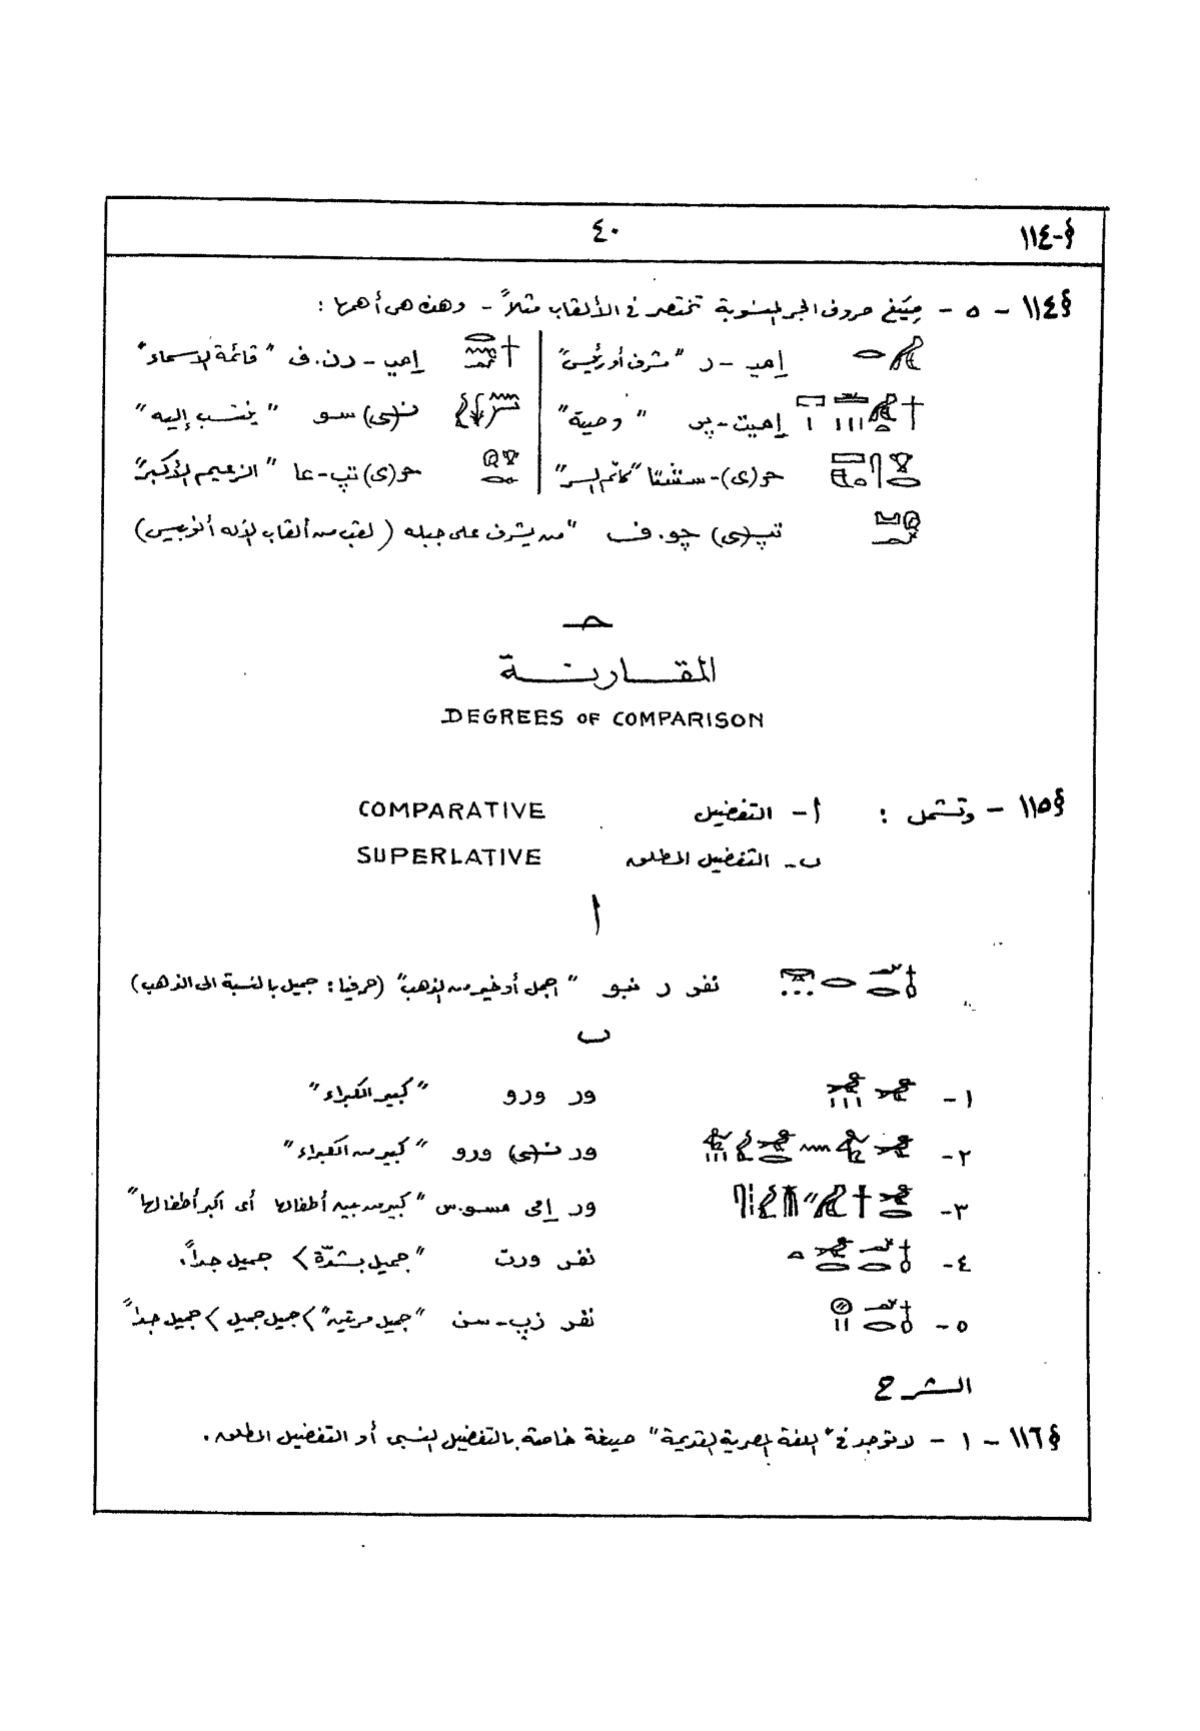 §-١١٤ ٤٠
§١١٤ - ٥ - صِيَغ حروف الجر المنسوبة تختصر فى الألقاب مثلاً - وهذه هى أهمها :
إمى - ر "مشرف أو رئيس" إمى - رن.ف "قائمة الاسماء"
إميت - پر "وصية" ن(ى) سو "ينتسب إليه"
حر(ى) - سشتا "كاتم السر" حر(ى) تپ - عا "الزعيم الأكبر"
تپ(ى) چو.ف "من يشرف على جبله (لقب من ألقاب الإله أنوبيس)
حـ
المقارنة
DEGREES OF COMPARISON
§١١٥ - وتشمل : أ - التفضيل COMPARATIVE
ب - التفضيل المطلق SUPERLATIVE
أ
نفر ر نبو "اجمل أو خير من الذهب" (حرفيا : جميل بالنسبة الى الذهب)
ب
١- ور ورو "كبير الكبراء"
٢- ور ن(ى) ورو "كبير من الكبراء"
٣- ور إمى مسو.س "كبير من بين أطفالها أى اكبر أطفالها"
٤- نفر ورت "جميل بشدّة > جميل جداً.
٥- نفر زپ - سن "جميل مرتين" > جميل جميل > جميل جداً"
الشرح
§١١٦ - ١ - لا توجد فى "اللغة المصرية القديمة" صيغة خاصة بالتفضيل النسبى أو التفضيل المطلق.